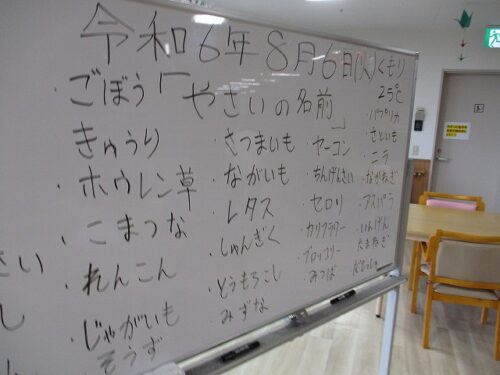 令和6年8月6日(火)くもり
25℃
「やさいの名前」
・ごぼう
きゅうり
・ホウレン草
・こまつな
・れんこん
・じゃがいも
そうず
・さつまいも
・ながいも
・レタス
・しゅんぎく
・とうもろこし
みずな
・ヤーコン
・ちんげんさい
・セロリ
・カリフラワー
・ブロッコリー
・みつば
・パプリカ
・さといも
・ニラ
・ながねぎ
・アスパラ
・いんげん
たまねぎ
さい
し